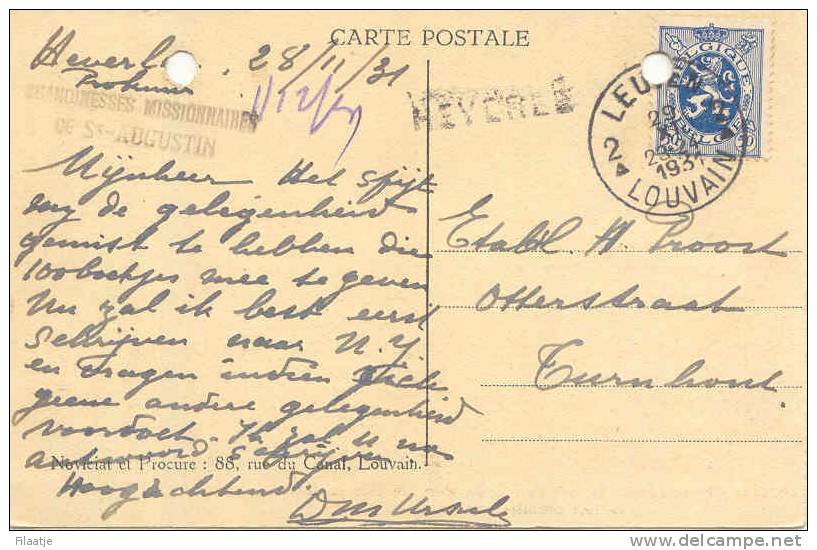 CARTE POSTALE
Heverlé 28/11/31
CHANOINESSES MISSIONNAIRES
de St-AUGUSTIN
HEVERLE
BELGIQUE
BELGIË
LEUVEN 2
29
1931
2 LOUVAIN
Mijnheer Het spijt
my de gelegenheid
gemist te hebben die
100 boekjes mee te geven
Nu zal ik best eerst
schrijven naar N.Y
en vragen indien zich
geene andere gelegenheid
voordoet. Ik zal U
antwoord schrijven
Hoogachtend.
Noviciat et Procure : 88, rue du Canal, Louvain.
Etabl. H. Proost
Otterstraat
Turnhout
Filaatje
delcampe.net